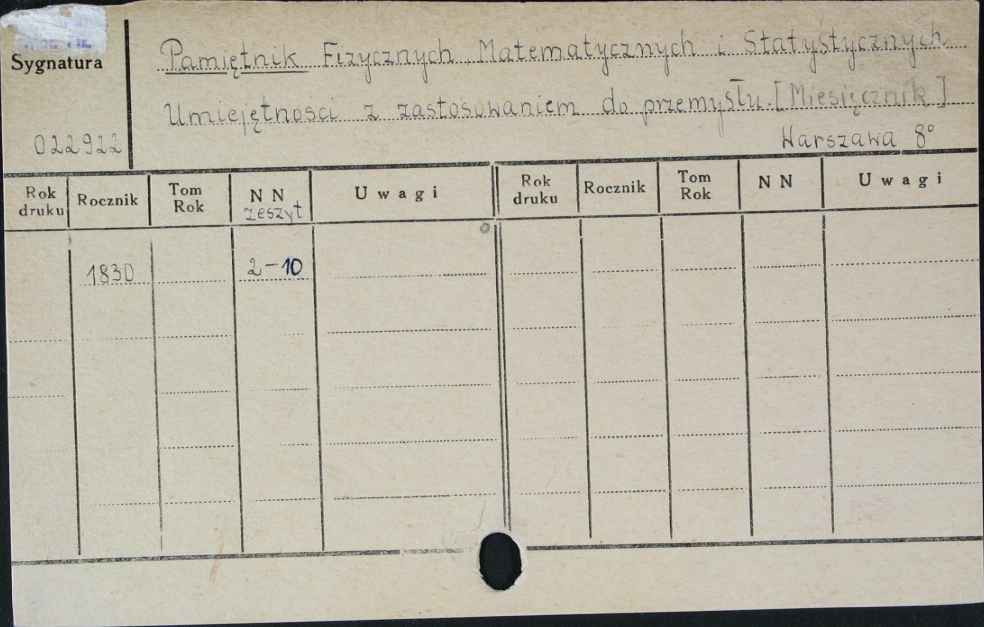 Sygnatura
Pamiętnik Fizycznych, Matematycznych i Statystycznych
Umiejętności z zastosowaniem do przemysłu. [Miesięcznik]
022922
Warszawa 8°
Rok druku Rocznik Tom Rok N N zeszyt Uwagi Rok druku Rocznik Tom Rok N N Uwagi
1830 2-10